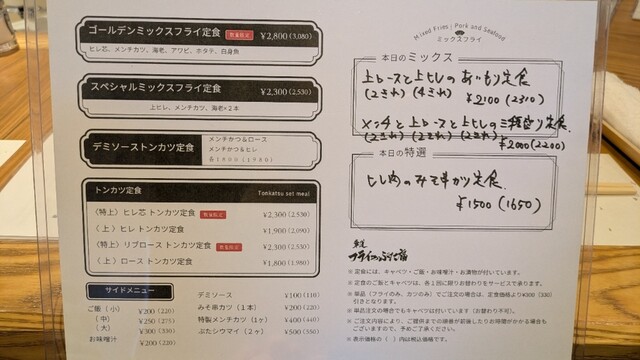 ゴールデンミックスフライ定食 数量限定 ¥2,800(3,080)
ヒレ芯、メンチカツ、海老、アワビ、ホタテ、白身魚
スペシャルミックスフライ定食 ¥2,300(2,530)
上ヒレ、メンチカツ、海老×2本
デミソーストンカツ定食
メンチかつ＆ロース
メンチかつ＆ヒレ
各1800(1980)
トンカツ定食 Tonkatsu set meal
〈特上〉ヒレ芯 トンカツ定食 数量限定 ¥2,300(2,530)
〈上〉ヒレ トンカツ定食 ¥1,900(2,090)
〈特上〉リブロース トンカツ定食 数量限定 ¥2,300(2,530)
〈上〉ロース トンカツ定食 ¥1,800(1,980)
サイドメニュー
ご飯(小) ¥200(220)
(中) ¥250(275)
(大) ¥300(330)
お味噌汁 ¥200(220)
デミソース ¥100(110)
みそ串カツ(1本) ¥200(220)
特製メンチカツ(1ヶ) ¥400(440)
ぶたシウマイ(2ヶ) ¥500(550)
Mixed Fries : Pork and Seafood
ミックスフライ
本日のミックス
上ロースと上ヒレのあいもり定食
(2きれ)(4きれ) ¥2100(2310)
メンチと上ロースと上ヒレの三種盛り定食
(2きれ)(2きれ)(2きれ) ¥2000(2200)
本日の特選
ヒレ肉のみそ串カツ定食
¥1500(1650)
※定食には、キャベツ・ご飯・お味噌汁・お漬物が付いています。
※定食のご飯とキャベツは、各1回に限りお替わりをサービスで承ります。
※単品(フライのみ、カツのみ)でご注文の場合は、定食価格より¥300(330)
引きとなります。
※単品注文の場合でもキャベツは付いています(お替わり不可)。
※ご注文内容により、ご提供までの順番が前後したりお時間がかかる場合も
ございますので、予めご了承ください。
※表示価格の( )内は税込価格です。